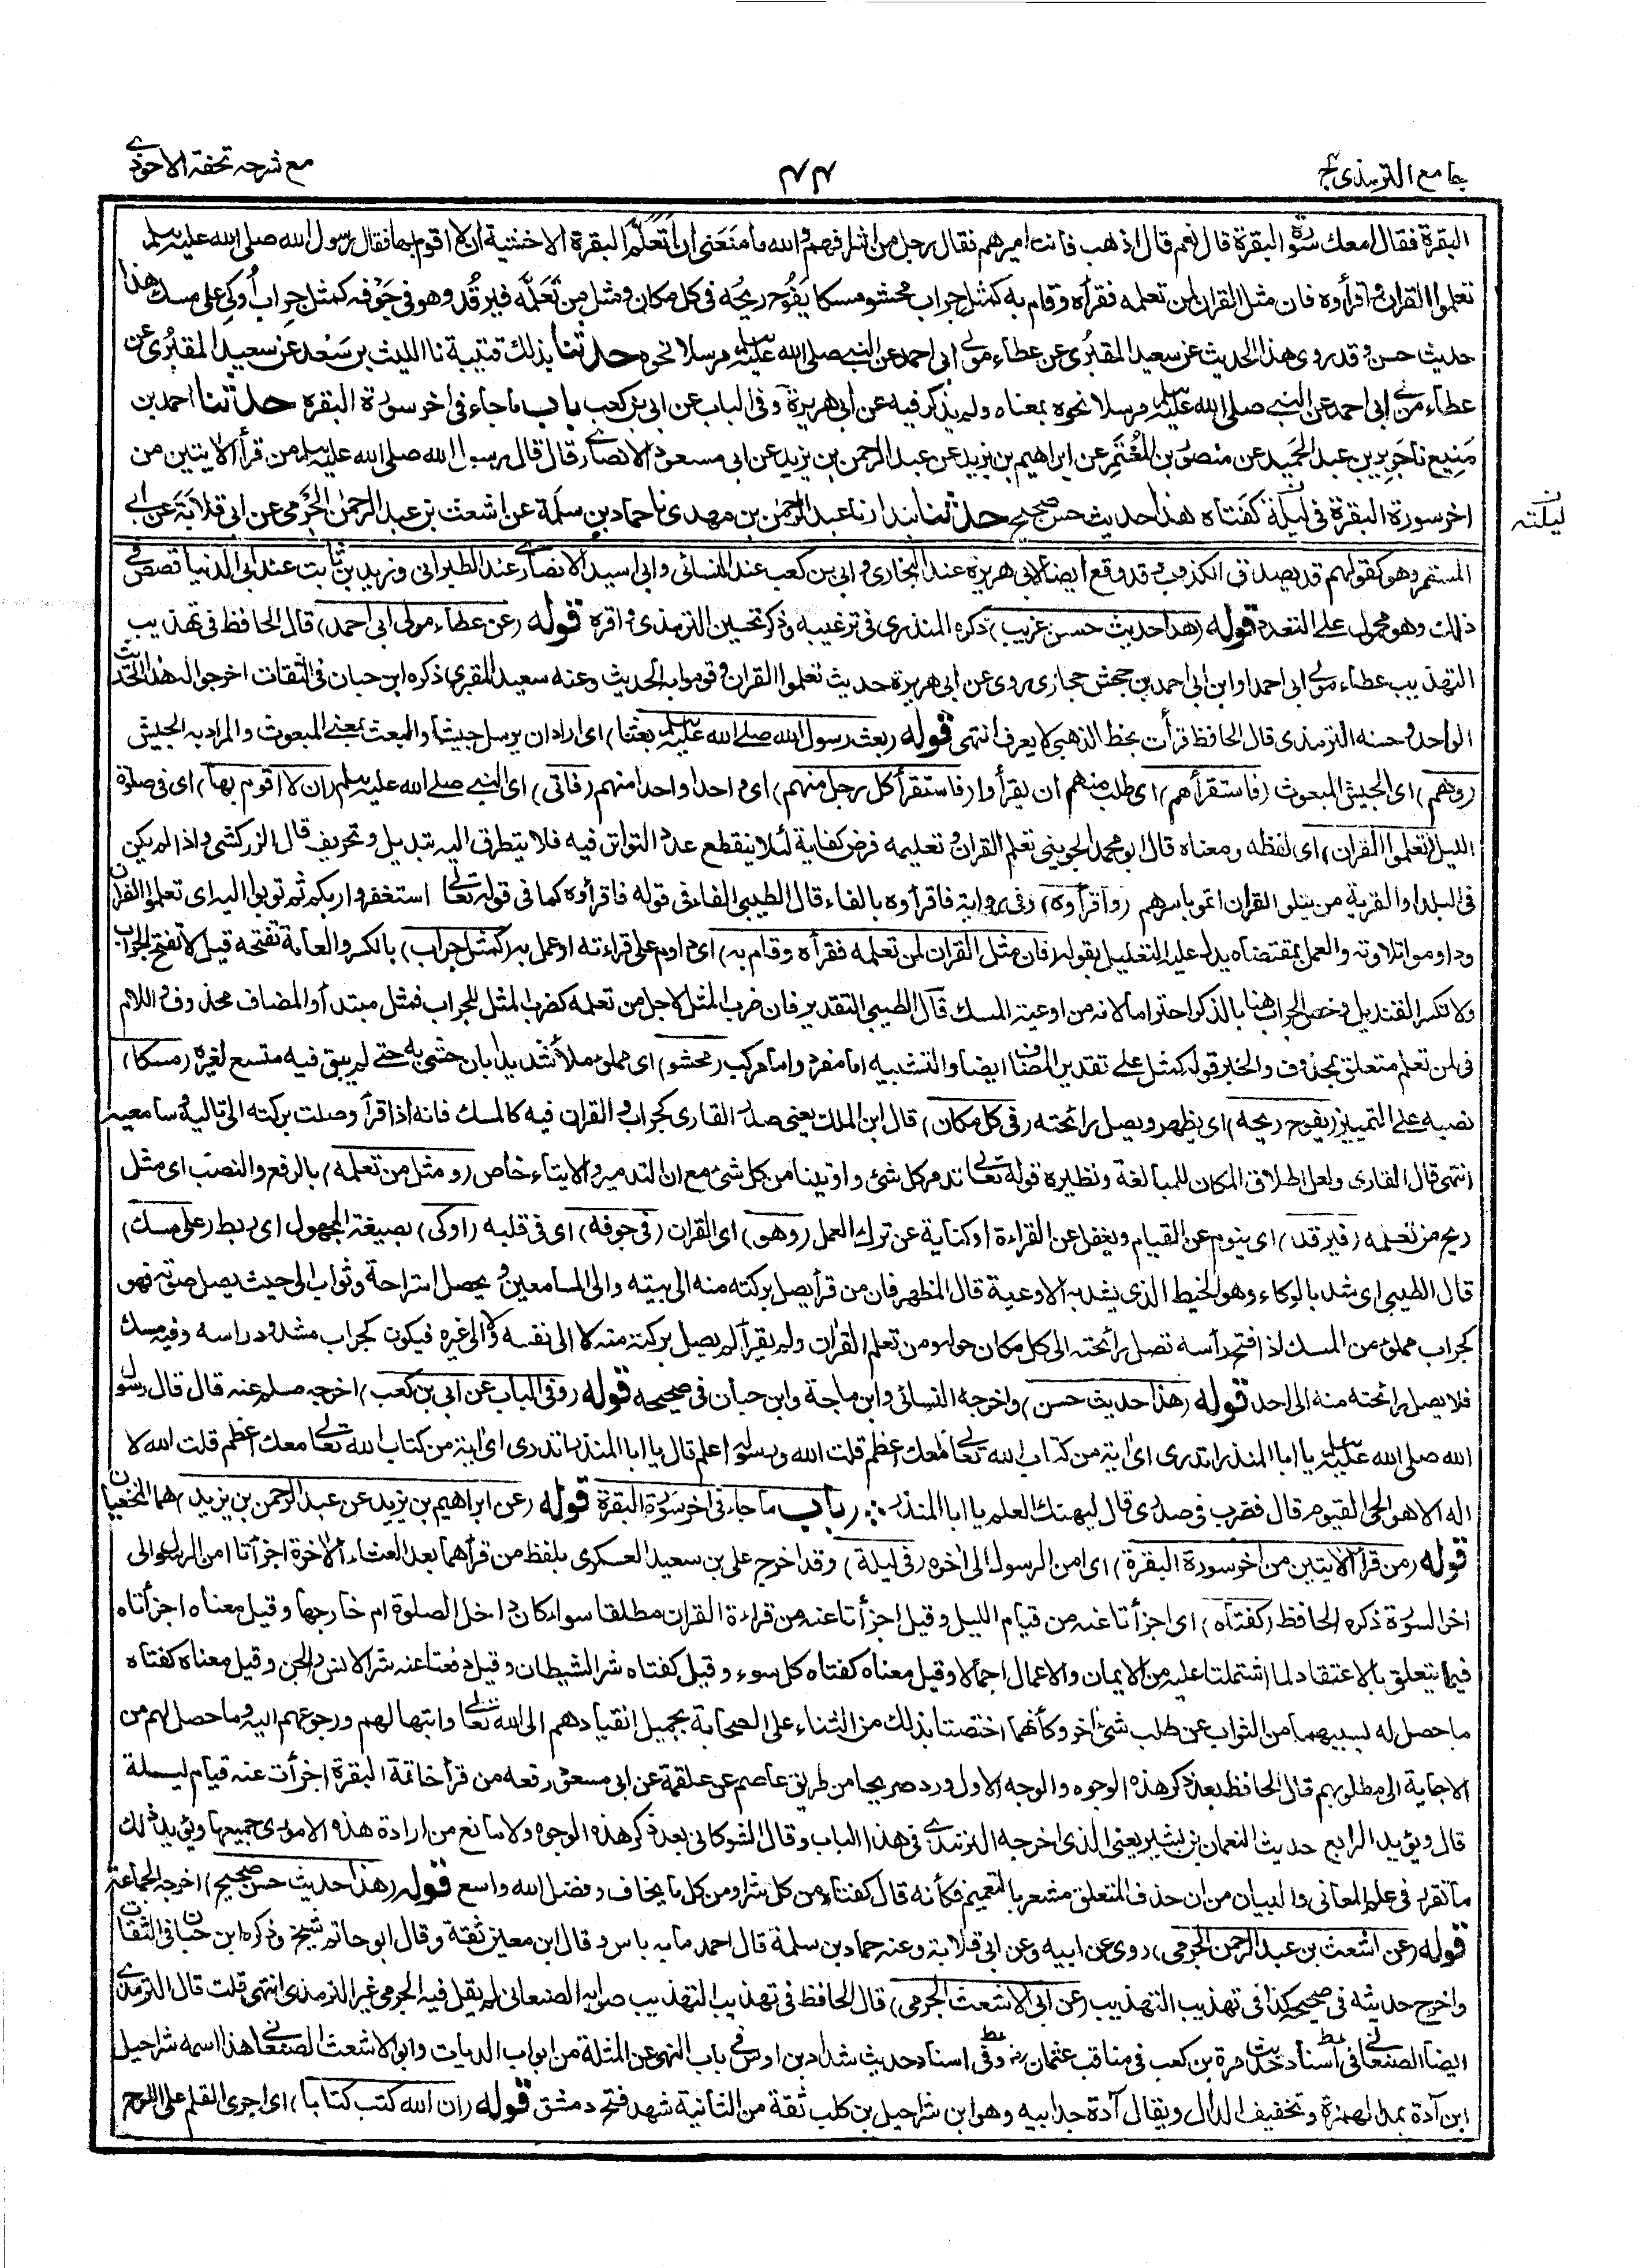 جامع الترمذی ج ۴
۴۴
مع شرحه تحفة الاحوذی
البقرة فقال امعك سورة البقرة قال نعم قال اذهب فانت اميرهم فقال رجل من اشرافهم والله ما منعنى ان اَتَعلَّمَ البقرة الا خشية ان لا اقوم بها فقال رسول الله صلى الله عليه وسلم
تعلموا القران واقرأوه فان مثل القران لمن تعلمه فقرأه وقام به كمثل جراب محشو مسكا يَفُوح ريحُه فى كل مكان ومثل من تَعَلَّمَه فيَرقُد وهو فى جَوفه كمثل جِراب اُوكِىَ على مسك هذا
حديث حسن وقد روى هذا الحديث عن سعيد المقبُرى عن عطاء مولى ابى احمد عن النبى صلى الله عليه وسلم مرسلا نحوه حدثنا بذلك قتيبة نا الليث بن سَعْد عن سعيد المقبُرى عن
عطاء مولى ابى احمد عن النبى صلى الله عليه وسلم مرسلا نحوه بمعناه ولم يذكر فيه عن ابى هريرة وفى الباب عن ابى بن كعب باب ما جاء فى اخر سورة البقرة حدثنا احمد بن
مَنِيع نا جرير بن عبد الحميد عن منصور بن المُعْتَمِر عن ابراهيم بن يزيد عن عبد الرحمن بن يزيد عن ابى مسعود الانصارى قال قال رسول الله صلى الله عليه وسلم من قرأ الايتين من
اخر سورة البقرة فى ليلة كَفَتَاه هذا حديث حسن صحيح حدثنا بندار نا عبد الرحمن بن مهدى نا حماد بن سلمة عن اشعث بن عبد الرحمن الجَرْمى عن ابى قلابَة عن ابى
ن ليلته
المستمر وهو كقولهم قد يصدق الكذوب وقد وقع ايضا لابى هريرة عند البخارى وابى بن كعب عند النسائى وابى اسيد الانصارى عند الطبرانى وزيد بن ثابت عند ابى الدنيا قصص فى
ذلك وهو محمول على التعدد قوله (هذا حديث حسن غريب) ذكره المنذرى فى ترغيبه وذكر تحسين الترمذى واقره قوله (عن عطاء مولى ابى احمد) قال الحافظ فى تهذيب
التهذيب عطاء مولى ابى احمد او ابن ابى احمد بن جحش حجازى روى عن ابى هريرة حديث تعلموا القران وقوموا به الحديث وعنه سعيد المقبرى ذكره ابن حبان فى الثقات اخرجوا له هذا الحديث
الواحد وحسنه الترمذى قال الحافظ قرأت بخط الذهبى لا يعرف انتهى قوله (بعث رسول الله صلى الله عليه وسلم بعثا) اى اراد ان يرسل جيشا والبعث بمعنى المبعوث والمراد به الجيش
(وهم) اى الجيش المبعوث (فاستقرأهم) اى طلب منهم ان يقرأوا (فاستقرأ كل رجل منهم) اى واحدا واحدا منهم (فاتى) اى النبى صلى الله عليه وسلم (ان لا اقوم بها) اى فى صلوة
الليل (تعلموا القران) اى لفظه ومعناه قال ابو محمد الجوينى تعلم القران وتعليمه فرض كفاية لئلا ينقطع عدد التواتر فيه فلا يتطرق اليه تبديل وتحريف قال الزركشى واذا لم يكن
فى البلد او القرية من يتلو القران اثموا باسرهم (واقرأوه) وفى رواية فاقرأوه بالفاء قال الطيبى الفاء فى قوله فاقرأوه كما فى قوله تعالى استغفروا ربكم ثم توبوا اليه اى تعلموا القران
وداوموا تلاوته والعمل بمقتضاه يدل عليه التعليل بقوله (فان مثل القران لمن تعلمه فقرأه وقام به) اى داوم على قراءته او عمل به (كمثل جراب) بالكسر والعامة تفتحه قيل لا تفتح الجراب
ولا تكسر القنديل وخص الجراب هنا بالذكر احتراما لانه من اوعية المسك قال الطيبى التقدير فان ضرب المثل لاجل من تعلمه كضرب المثل للجراب فمثل مبتدأ والمضاف محذوف واللام
فى لمن تعلم متعلق بمحذوف والخبر قوله كمثل على تقدير المضاف ايضا والتشبيه اما مفرد واما مركب (محشو) اى مملوء ملأ شديدا بان حشى به حتى لم يبق فيه متسع لغيره (مسكا)
نصبه على التمييز (يفوح ريحه) اى يظهر ويصل رائحته (فى كل مكان) قال ابن الملك يعنى صدر القارى كجراب والقران فيه كالمسك فانه اذا قرأ وصلت بركته الى تاليه وسامعيه
انتهى قال القارى ولعل اطلاق المكان للمبالغة ونظيره قوله تعالى تدمر كل شئ واوتينا من كل شئ مع ان التدمير والايتاء خاص (ومثل من تعلمه) بالرفع والنصب اى مثل
ريح من تعلمه (فيرقد) اى ينوم عن القيام ويغفل عن القراءة او كناية عن ترك العمل (وهو) اى القران (فى جوفه) اى فى قلبه (اوكى) بصيغة المجهول اى ربط (على مسك)
قال الطيبى اى شد بالوكاء وهو الخيط الذى يشد به الاوعية قال المظهر فان من قرأ يصل بركته منه الى بيته والى السامعين ويحصل استراحة وثواب الى حيث يصل صوته فهو
كجراب مملوء من المسك اذا فتح رأسه تصل رائحته الى كل مكان حوله ومن تعلم القران ولم يقرأ لم يصل بركته منه لا الى نفسه ولا الى غيره فيكون كجراب مشدود راسه وفيه مسك
فلا يصل رائحته منه الى احد قوله (هذا حديث حسن) واخرجه النسائى وابن ماجة وابن حبان فى صحيحه قوله (وفى الباب عن ابى بن كعب) اخرجه مسلم عنه قال قال رسول
الله صلى الله عليه وسلم يا ابا المنذر اتدرى اى اية من كتاب الله تعالى معك اعظم قلت الله ورسوله اعلم قال يا ابا المنذر اتدرى اى اية من كتاب الله تعالى معك اعظم قلت الله لا
اله الا هو الحى القيوم قال فضرب فى صدرى قال ليهنك العلم يا ابا المنذر (باب ما جاء فى اخر سورة البقرة قوله (عن ابراهيم بن يزيد عن عبد الرحمن بن يزيد) هما النخعيان
قوله (من قرأ الايتين من اخر سورة البقرة) اى امن الرسول الى اخره (فى ليلة) وقد اخرج على بن سعيد العسكرى بلفظ من قرأهما بعد العشاء الاخرة اجزأتا امن الرسول الى
اخر السورة ذكره الحافظ (كفتاه) اى اجزأتا عنه من قيام الليل وقيل اجزأتا عنه من قراءة القران مطلقا سواء كان داخل الصلوة ام خارجها وقيل معناه اجزأتاه
فيما يتعلق بالاعتقاد لما اشتملتا عليه من الايمان والاعمال اجمالا وقيل معناه كفتاه كل سوء وقيل كفتاه شر الشيطان وقيل دفعتا عنه شر الانس والجن وقيل معناه كفتاه
ما حصل له بسببهما من الثواب عن طلب شئ اخر وكأنهما اختصتا بذلك من الثناء على الصحابة بجميل انقيادهم الى الله تعالى وابتهالهم ورجوعهم اليه وما حصل لهم من
الاجابة الى مطلوبهم قال الحافظ بعد ذكر هذه الوجوه والوجه الاول ورد صريحا من طريق عاصم عن علقمة عن ابى مسعود رفعه من قرأ خاتمة البقرة اجزأت عنه قيام ليلة
قال ويؤيد الرابع حديث النعمان بن بشير يعنى الذى اخرجه الترمذى فى هذا الباب وقال الشوكانى بعد ذكر هذه الوجوه ولا مانع من ارادة هذه الامور جميعها ويؤيد ذلك
ما تقرر فى علم المعانى والبيان من ان حذف المتعلق مشعر بالتعميم فكأنه قال كفتاه من كل شر او من كل ما يخاف وفضل الله واسع قوله (هذا حديث حسن صحيح) اخرجه الجماعة
قوله (عن اشعث بن عبد الرحمن الجرمى) روى عن ابيه وعن ابى قلابة وعنه حماد بن سلمة قال احمد ما به باس وقال ابن معين ثقة وقال ابو حاتم شيخ وذكره ابن حبان فى الثقات
واخرج حديثه فى صحيحه كذا فى تهذيب التهذيب (عن ابى الاشعث الجرمى) قال الحافظ فى تهذيب التهذيب صوابه الصنعانى لم يقل فيه الجرمى غير الترمذى انتهى قلت قال الترمذى
ايضا الصنعانى فى اسناد حديث مرة بن كعب فى مناقب عثمان رض وفى اسناد حديث شداد بن اوس فى باب النهى عن المثلة من ابواب الديات وابو الاشعث الصنعانى هذا اسمه شراحيل
ابن آدة بمد الهمزة وتخفيف الدال ويقال آدة جد ابيه وهو ابن شراحيل بن كليب ثقة من الثانية شهد فتح دمشق قوله (ان الله كتب كتابا) اى اجرى القلم على اللوح